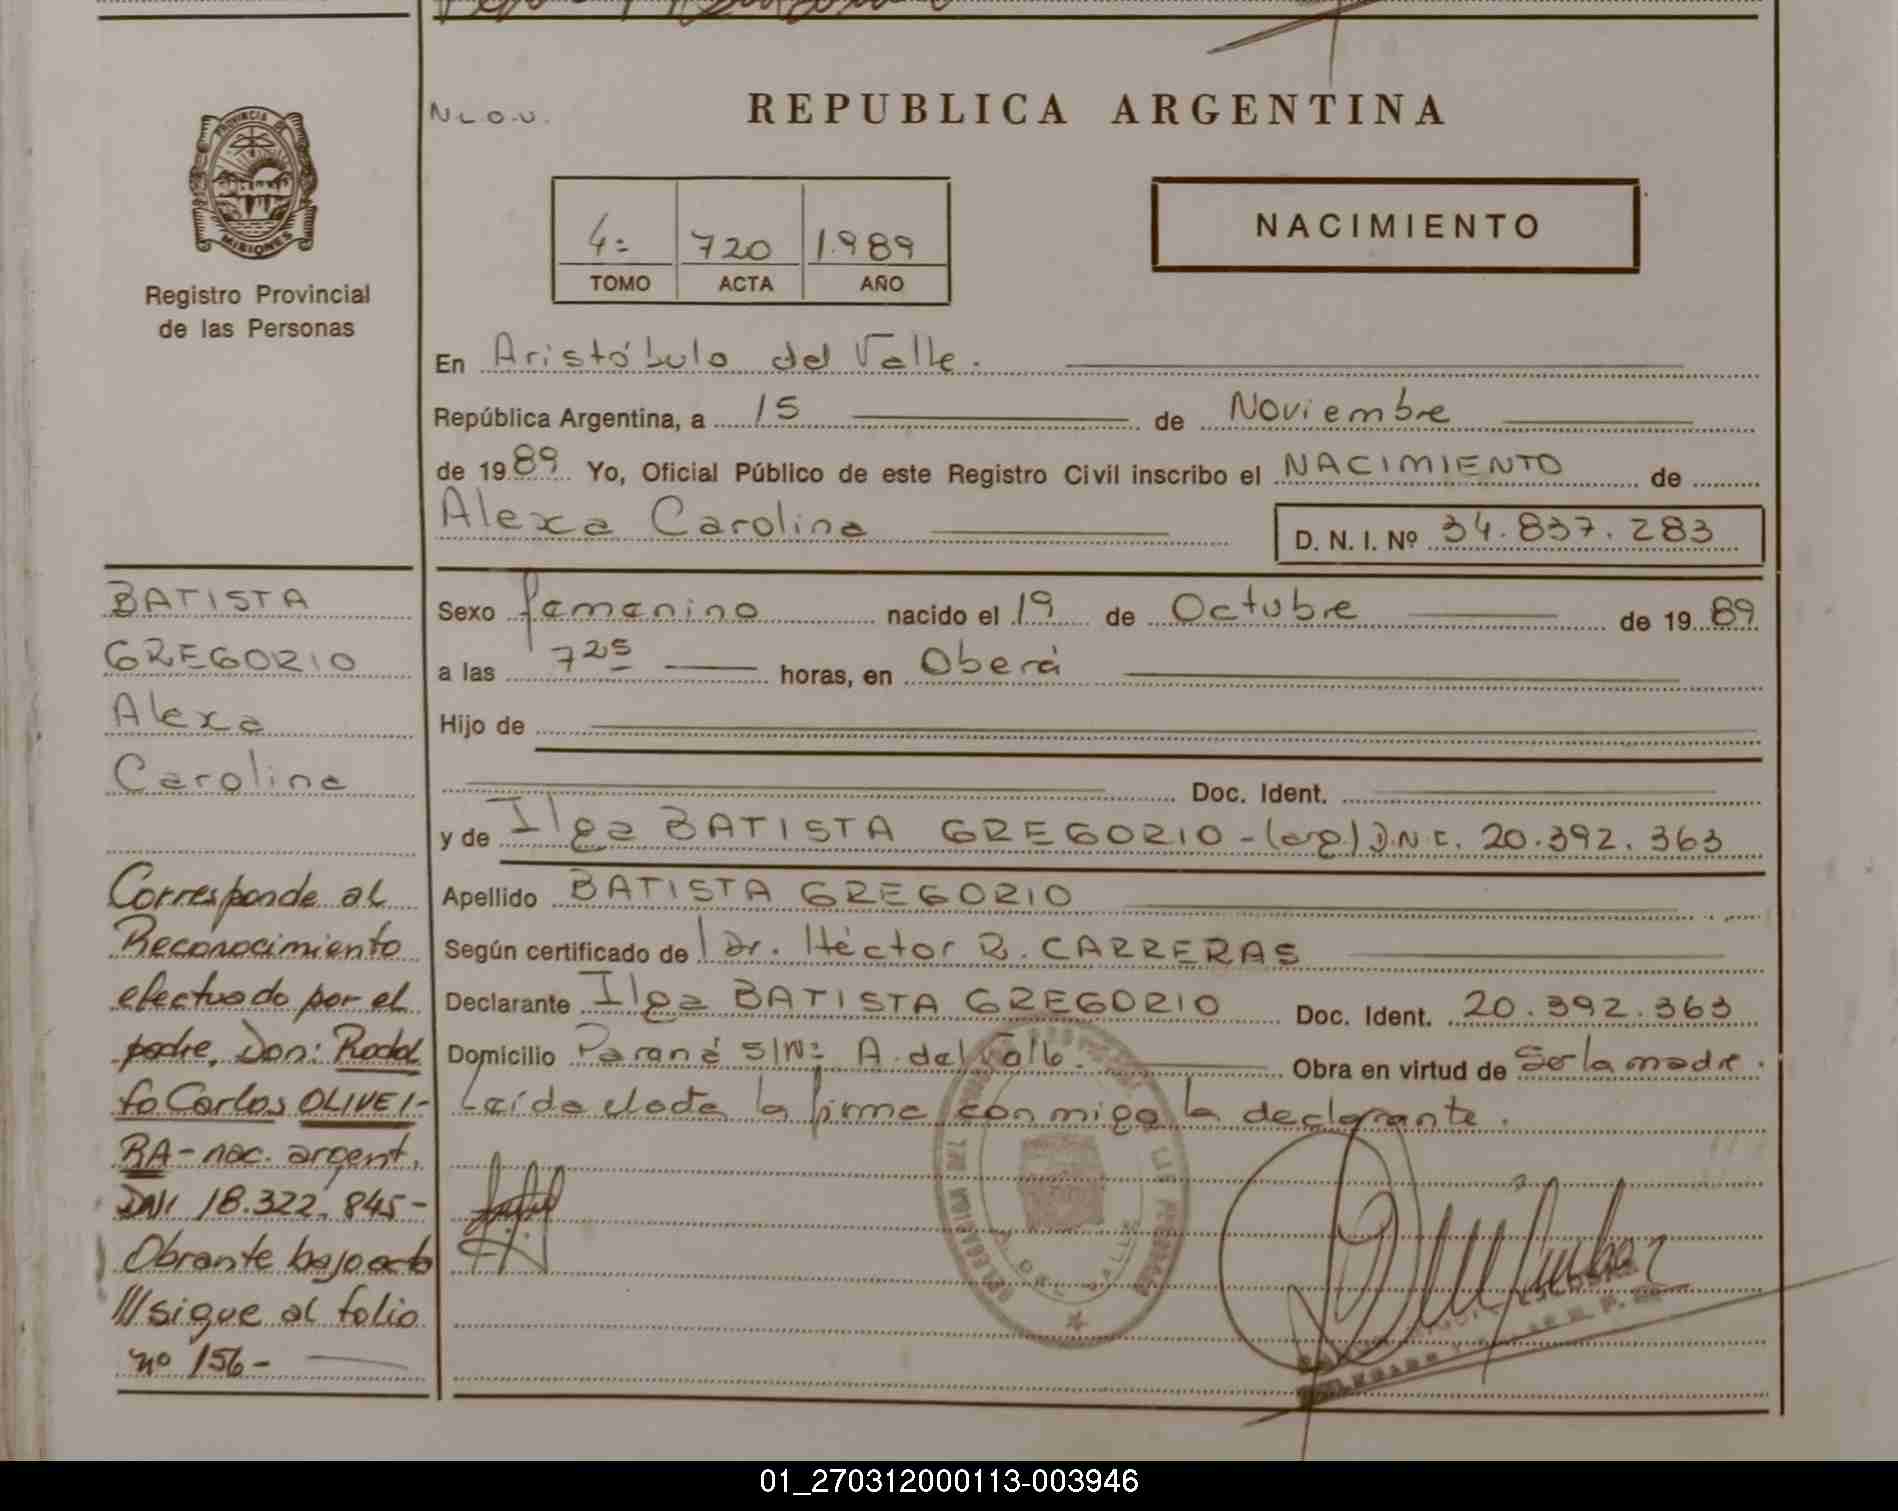 N.L.O.U.
REPUBLICA ARGENTINA
PROVINCIA DE
MISIONES
Registro Provincial
de las Personas
4=
720
1.989
TOMO
ACTA
AÑO
NACIMIENTO
En Aristóbulo del Valle.
República Argentina, a 15 de Noviembre
de 1989 Yo, Oficial Público de este Registro Civil inscribo el NACIMIENTO de
Alexa Carolina
D. N. I. Nº 34.837.283
BATISTA
GREGORIO
Alexa
Carolina
Sexo femenino nacido el 19 de Octubre de 1989
a las 7 25 horas, en Oberá
Hijo de
Doc. Ident.
y de Ilga BATISTA GREGORIO - (arg) D.N.I. 20.392.363
Apellido BATISTA GREGORIO
Según certificado de Dr. Héctor R. CARRERAS
Declarante Ilga BATISTA GREGORIO Doc. Ident. 20.392.363
Domicilio Paraná S/Nº A. del Valle. Obra en virtud de Ser la madre.
Leída el acta la firma conmigo la declarante.
Corresponde al
Reconocimiento
efectuado por el
padre, Don: Rodol
fo Carlos OLIVEI-
RA - nac. argent.
DNI 18.322.845-
Obrante bajo acta
///sigue al folio
nº 156-
DEL VALLE
01_270312000113-003946